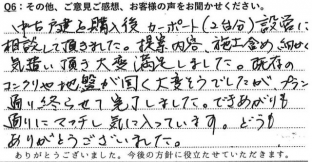 Q6：その他、ご意見ご感想、お客様の声をお聞かせください。
中古戸建を購入後カーポート（2台分）設営に
相談して頂きました。提案内容、施工含め細かく
気遣い頂き大変満足しました。既存の
コンクリや地盤が固く大変そうでしたが、プラン
通り終らせて完了しました。できあがりも
通りにマッチし気に入っています。どうも
ありがとうございました。
ありがとうございました。今後の方針に役立たせていただきます。